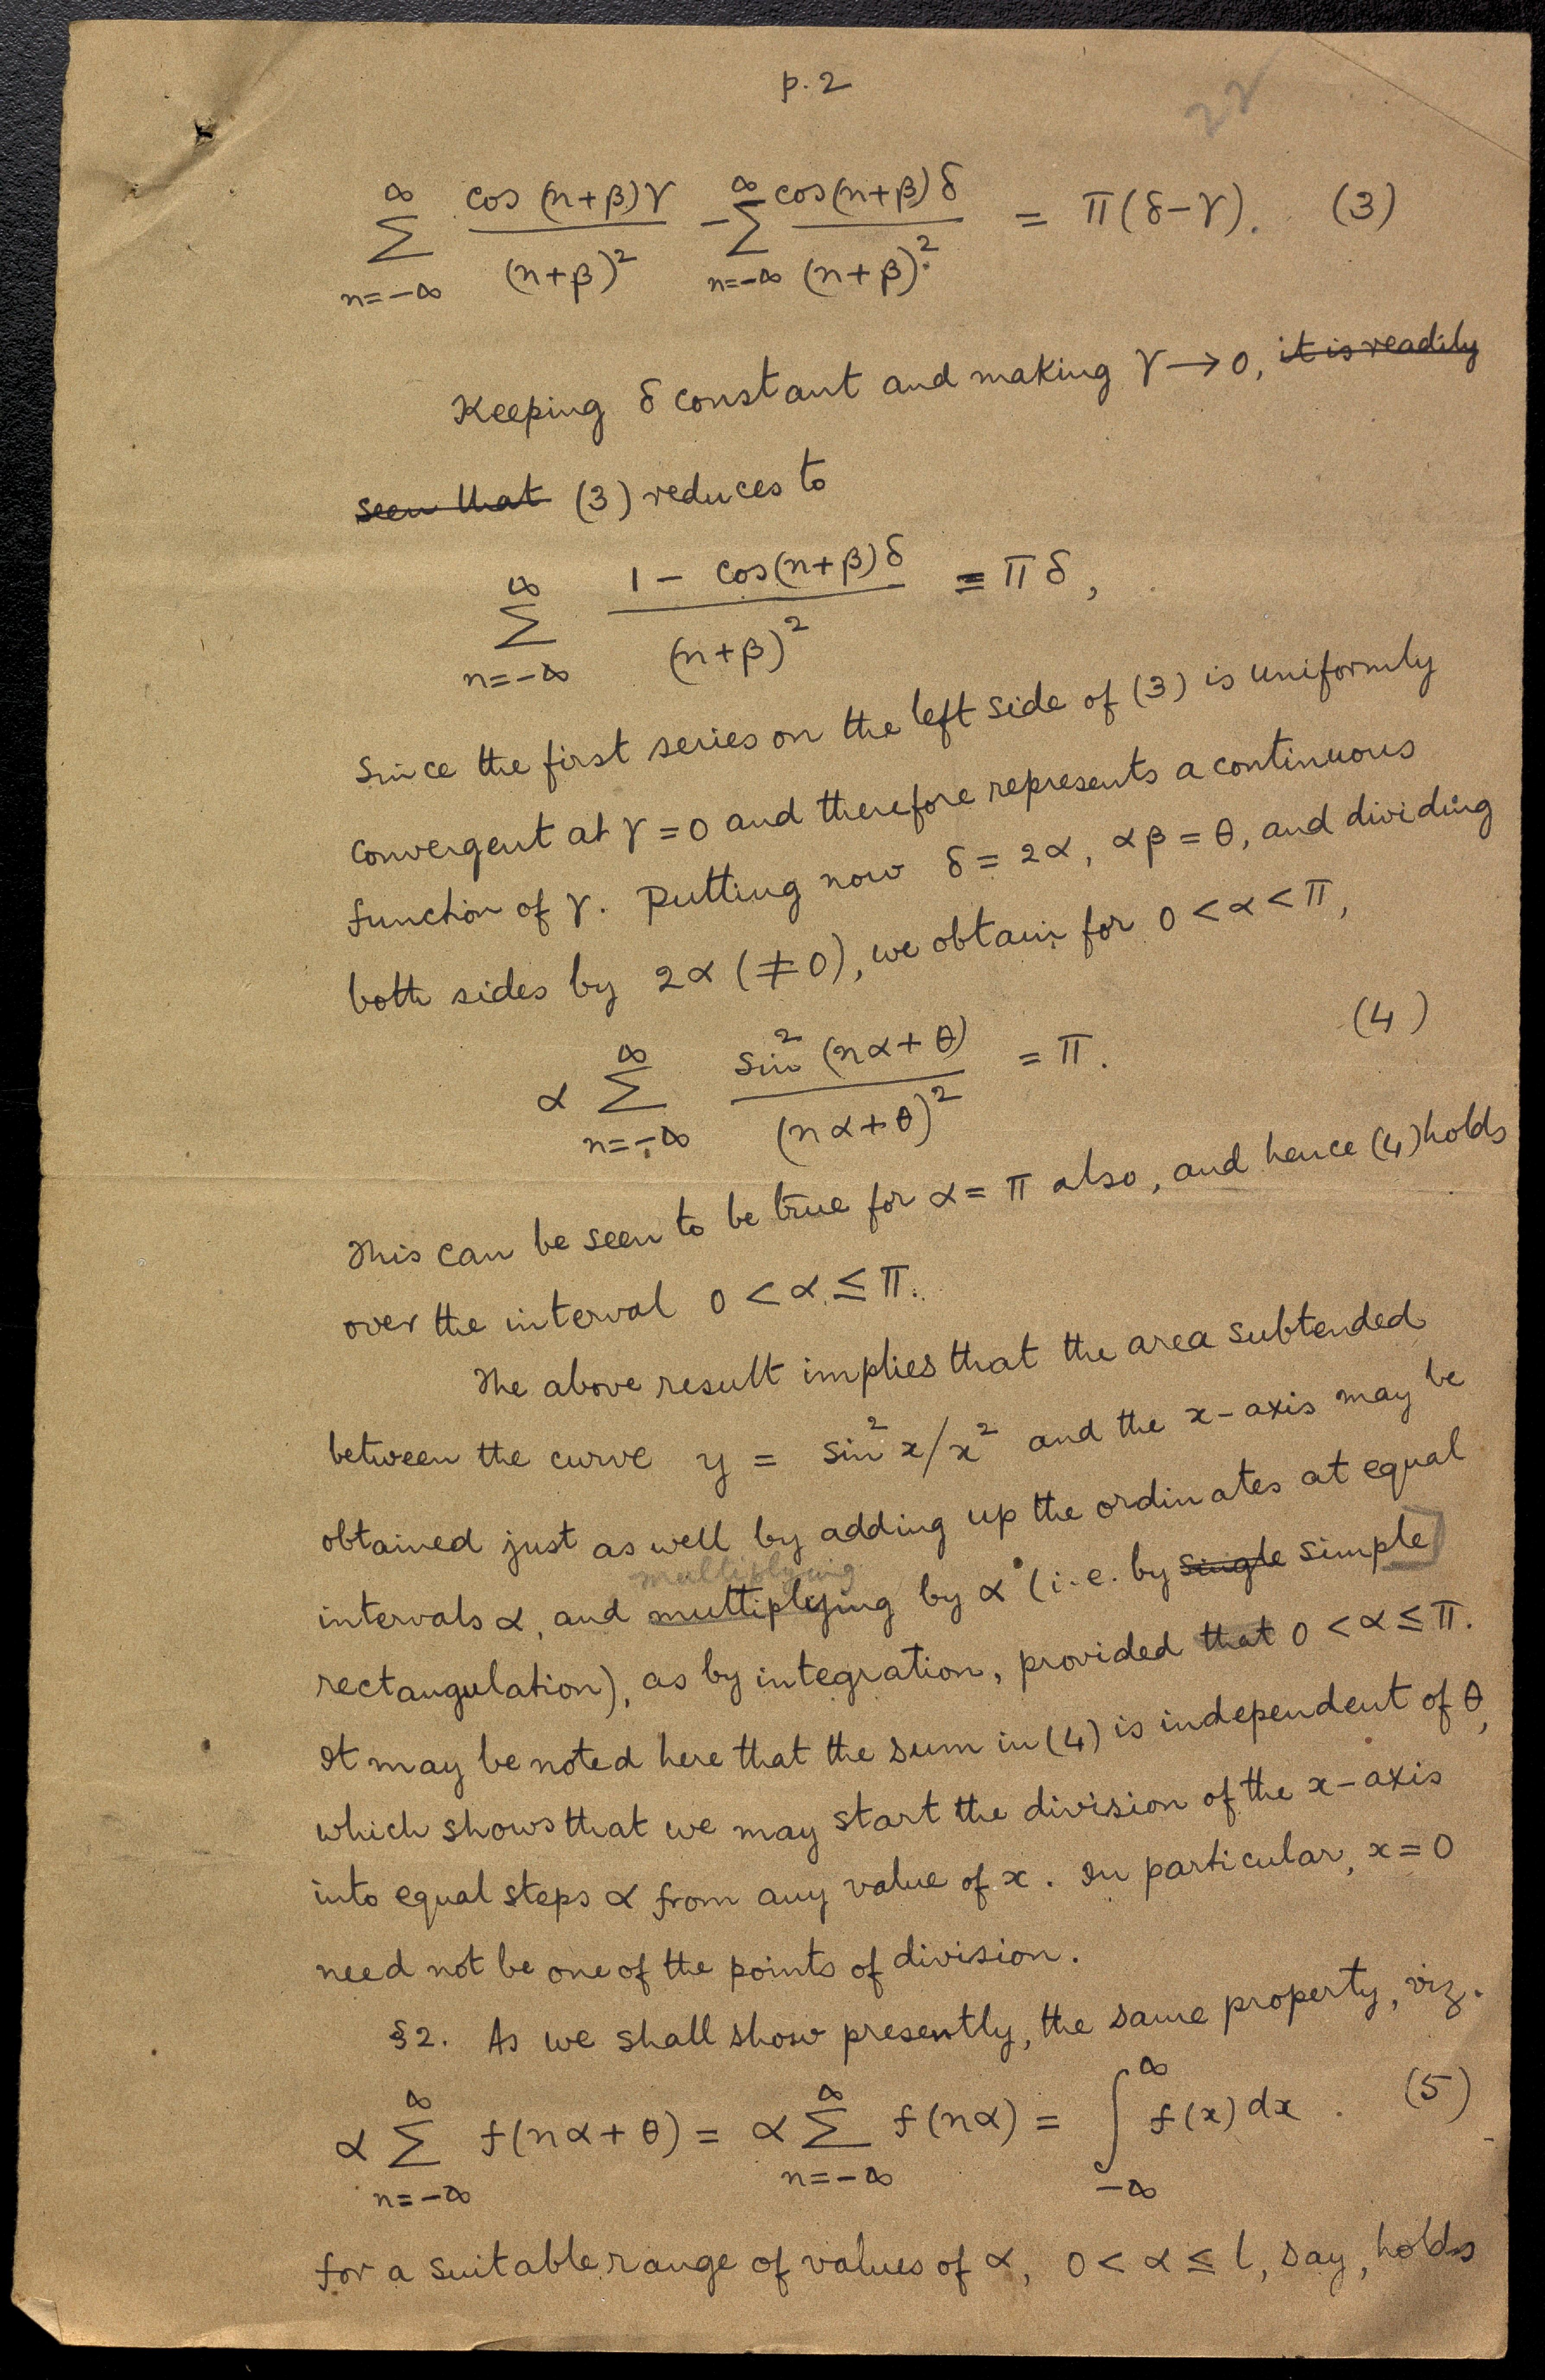 p. 2
22
∞ ∑ n=-∞ cos (n+β)γ / (n+β)² - ∞ ∑ n=-∞ cos(n+β)δ / (n+β)² = π(δ-γ). (3)
Keeping δ constant and making γ → 0, it is readily
seen that (3) reduces to
∞ ∑ n=-∞ 1 - cos(n+β)δ / (n+β)² = πδ,
Since the first series on the left side of (3) is uniformly
convergent at γ = 0 and therefore represents a continuous
function of γ. Putting now δ = 2α, αβ = θ, and dividing
both sides by 2α (≠0), we obtain for 0 < α < π,
α ∞ ∑ n=-∞ sin² (nα + θ) / (nα + θ)² = π. (4)
This can be seen to be true for α = π also, and hence (4) holds
over the interval 0 < α ≤ π.
The above result implies that the area subtended
between the curve y = sin² x/x² and the x-axis may be
obtained just as well by adding up the ordinates at equal
multiplying
intervals α, and multiplying by α (i.e. by single simple
rectangulation), as by integration, provided that 0 < α ≤ π.
It may be noted here that the sum in (4) is independent of θ,
which shows that we may start the division of the x-axis
into equal steps α from any value of x. In particular, x = 0
need not be one of the points of division.
§2. As we shall show presently, the same property, viz.
α ∞ ∑ n=-∞ f(nα + θ) = α ∞ ∑ n=-∞ f(nα) = ∞ ∫ -∞ f(x) dx. (5)
for a suitable range of values of α, 0 < α ≤ l, say, holds